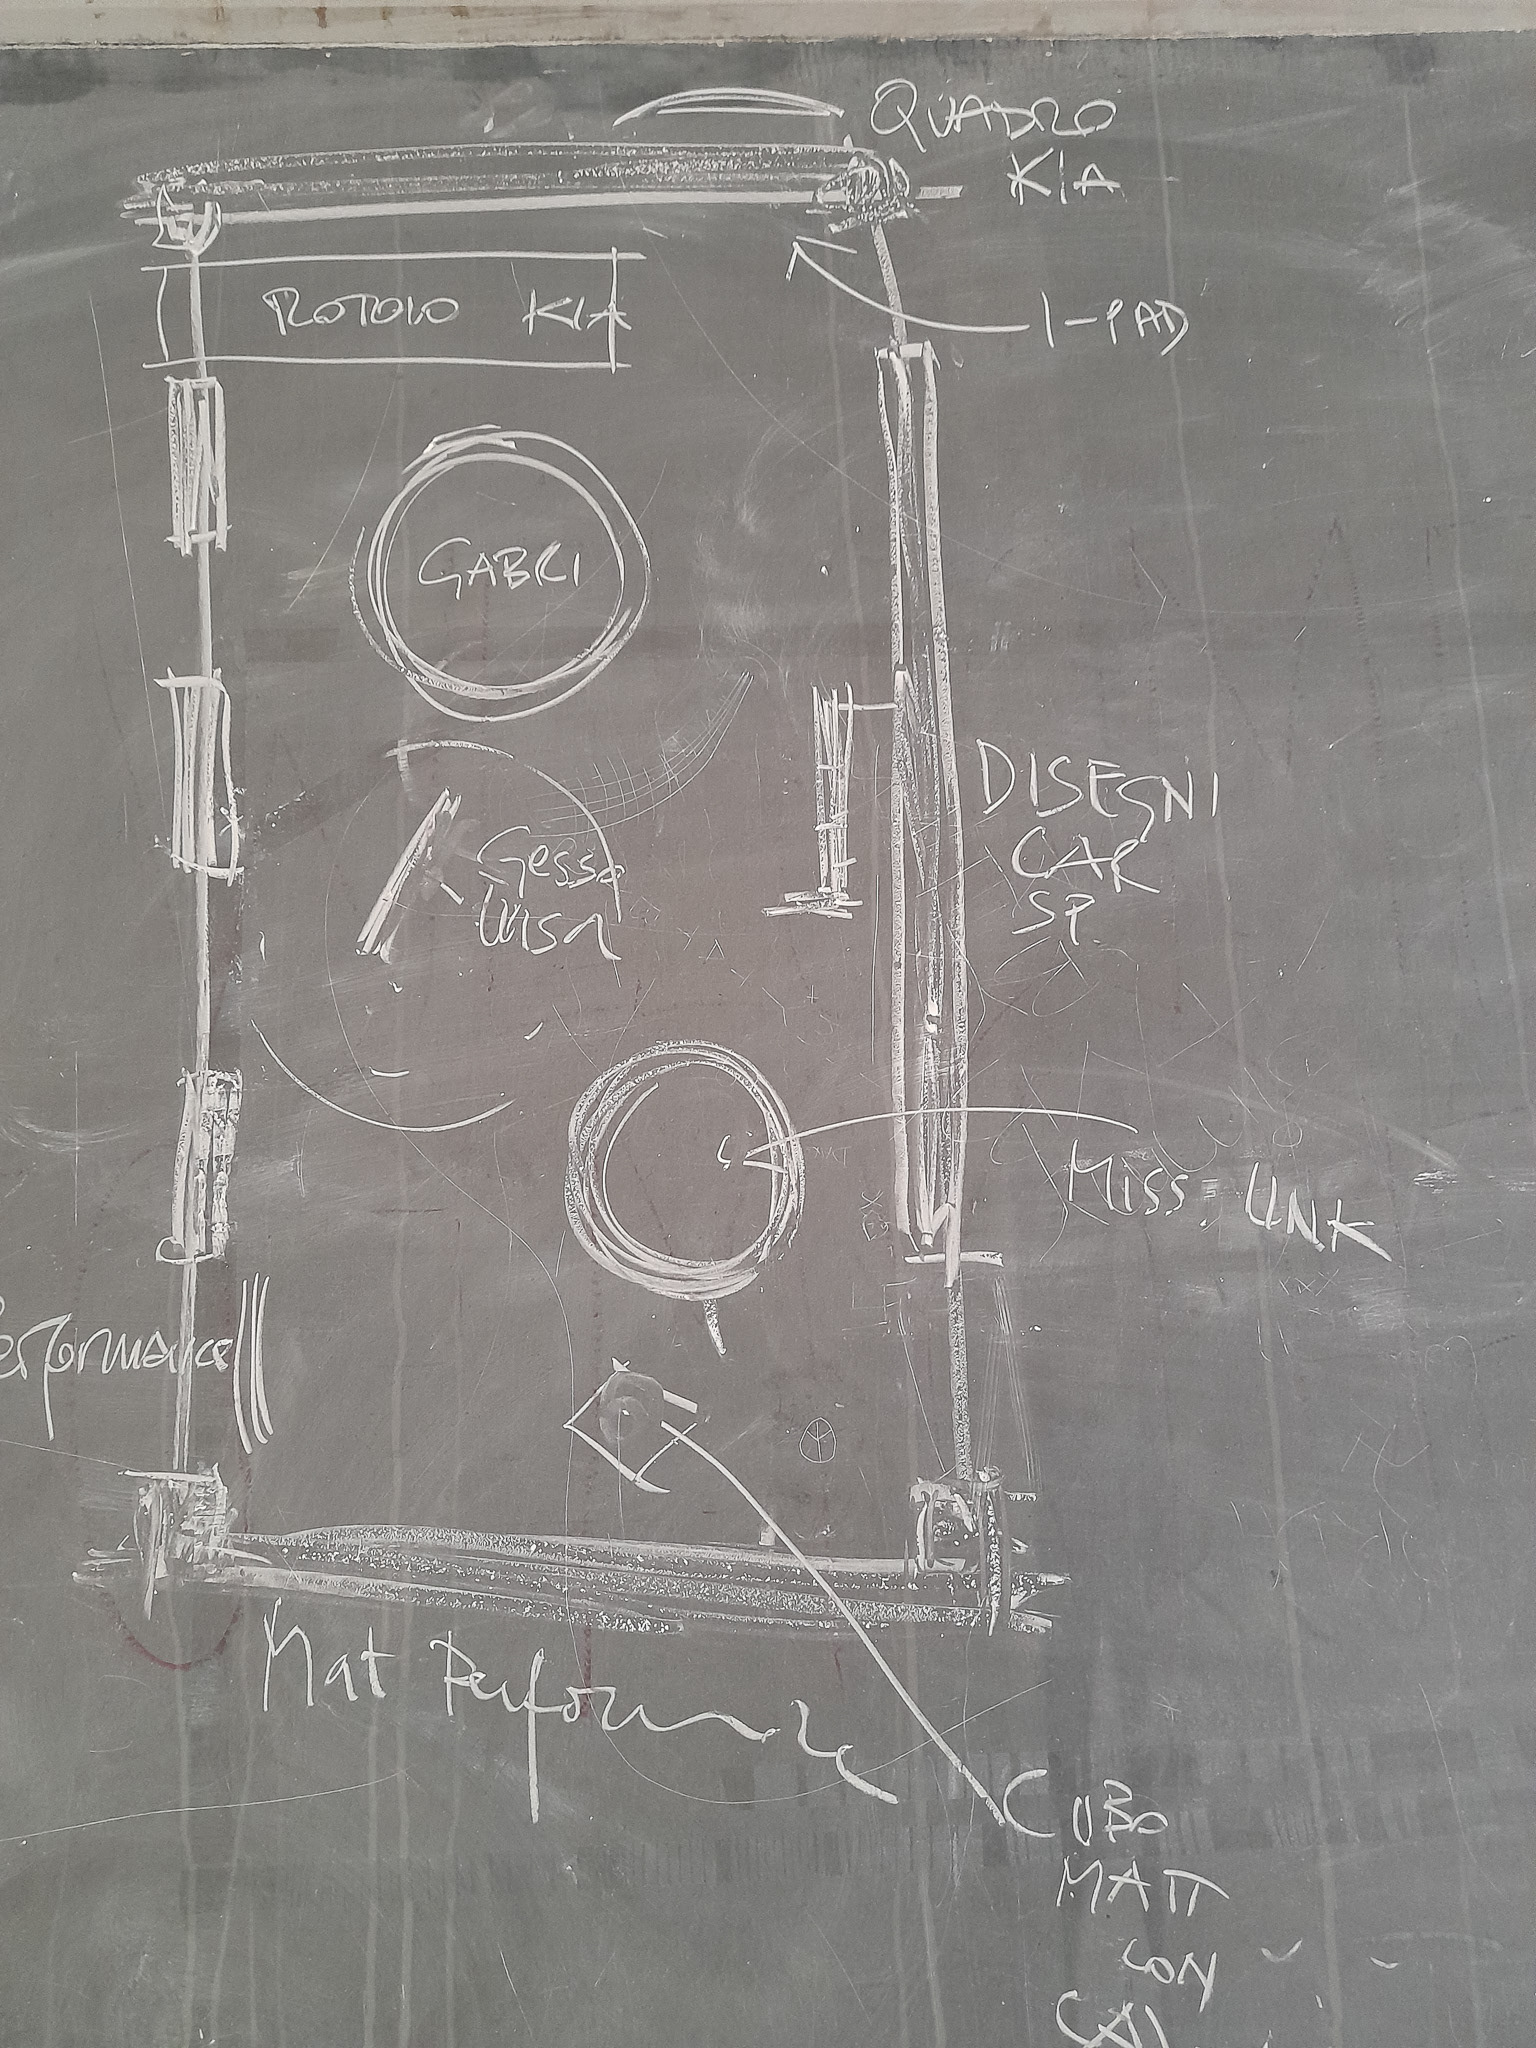 QUADRO
KIA
I-PAD
ROTOLO KIA
GABRI
DISEGNI
CAR
SP.
Gesso
LUISA
MISS. LINK
Performance
Mat Performance
CUBO
MATT
CON